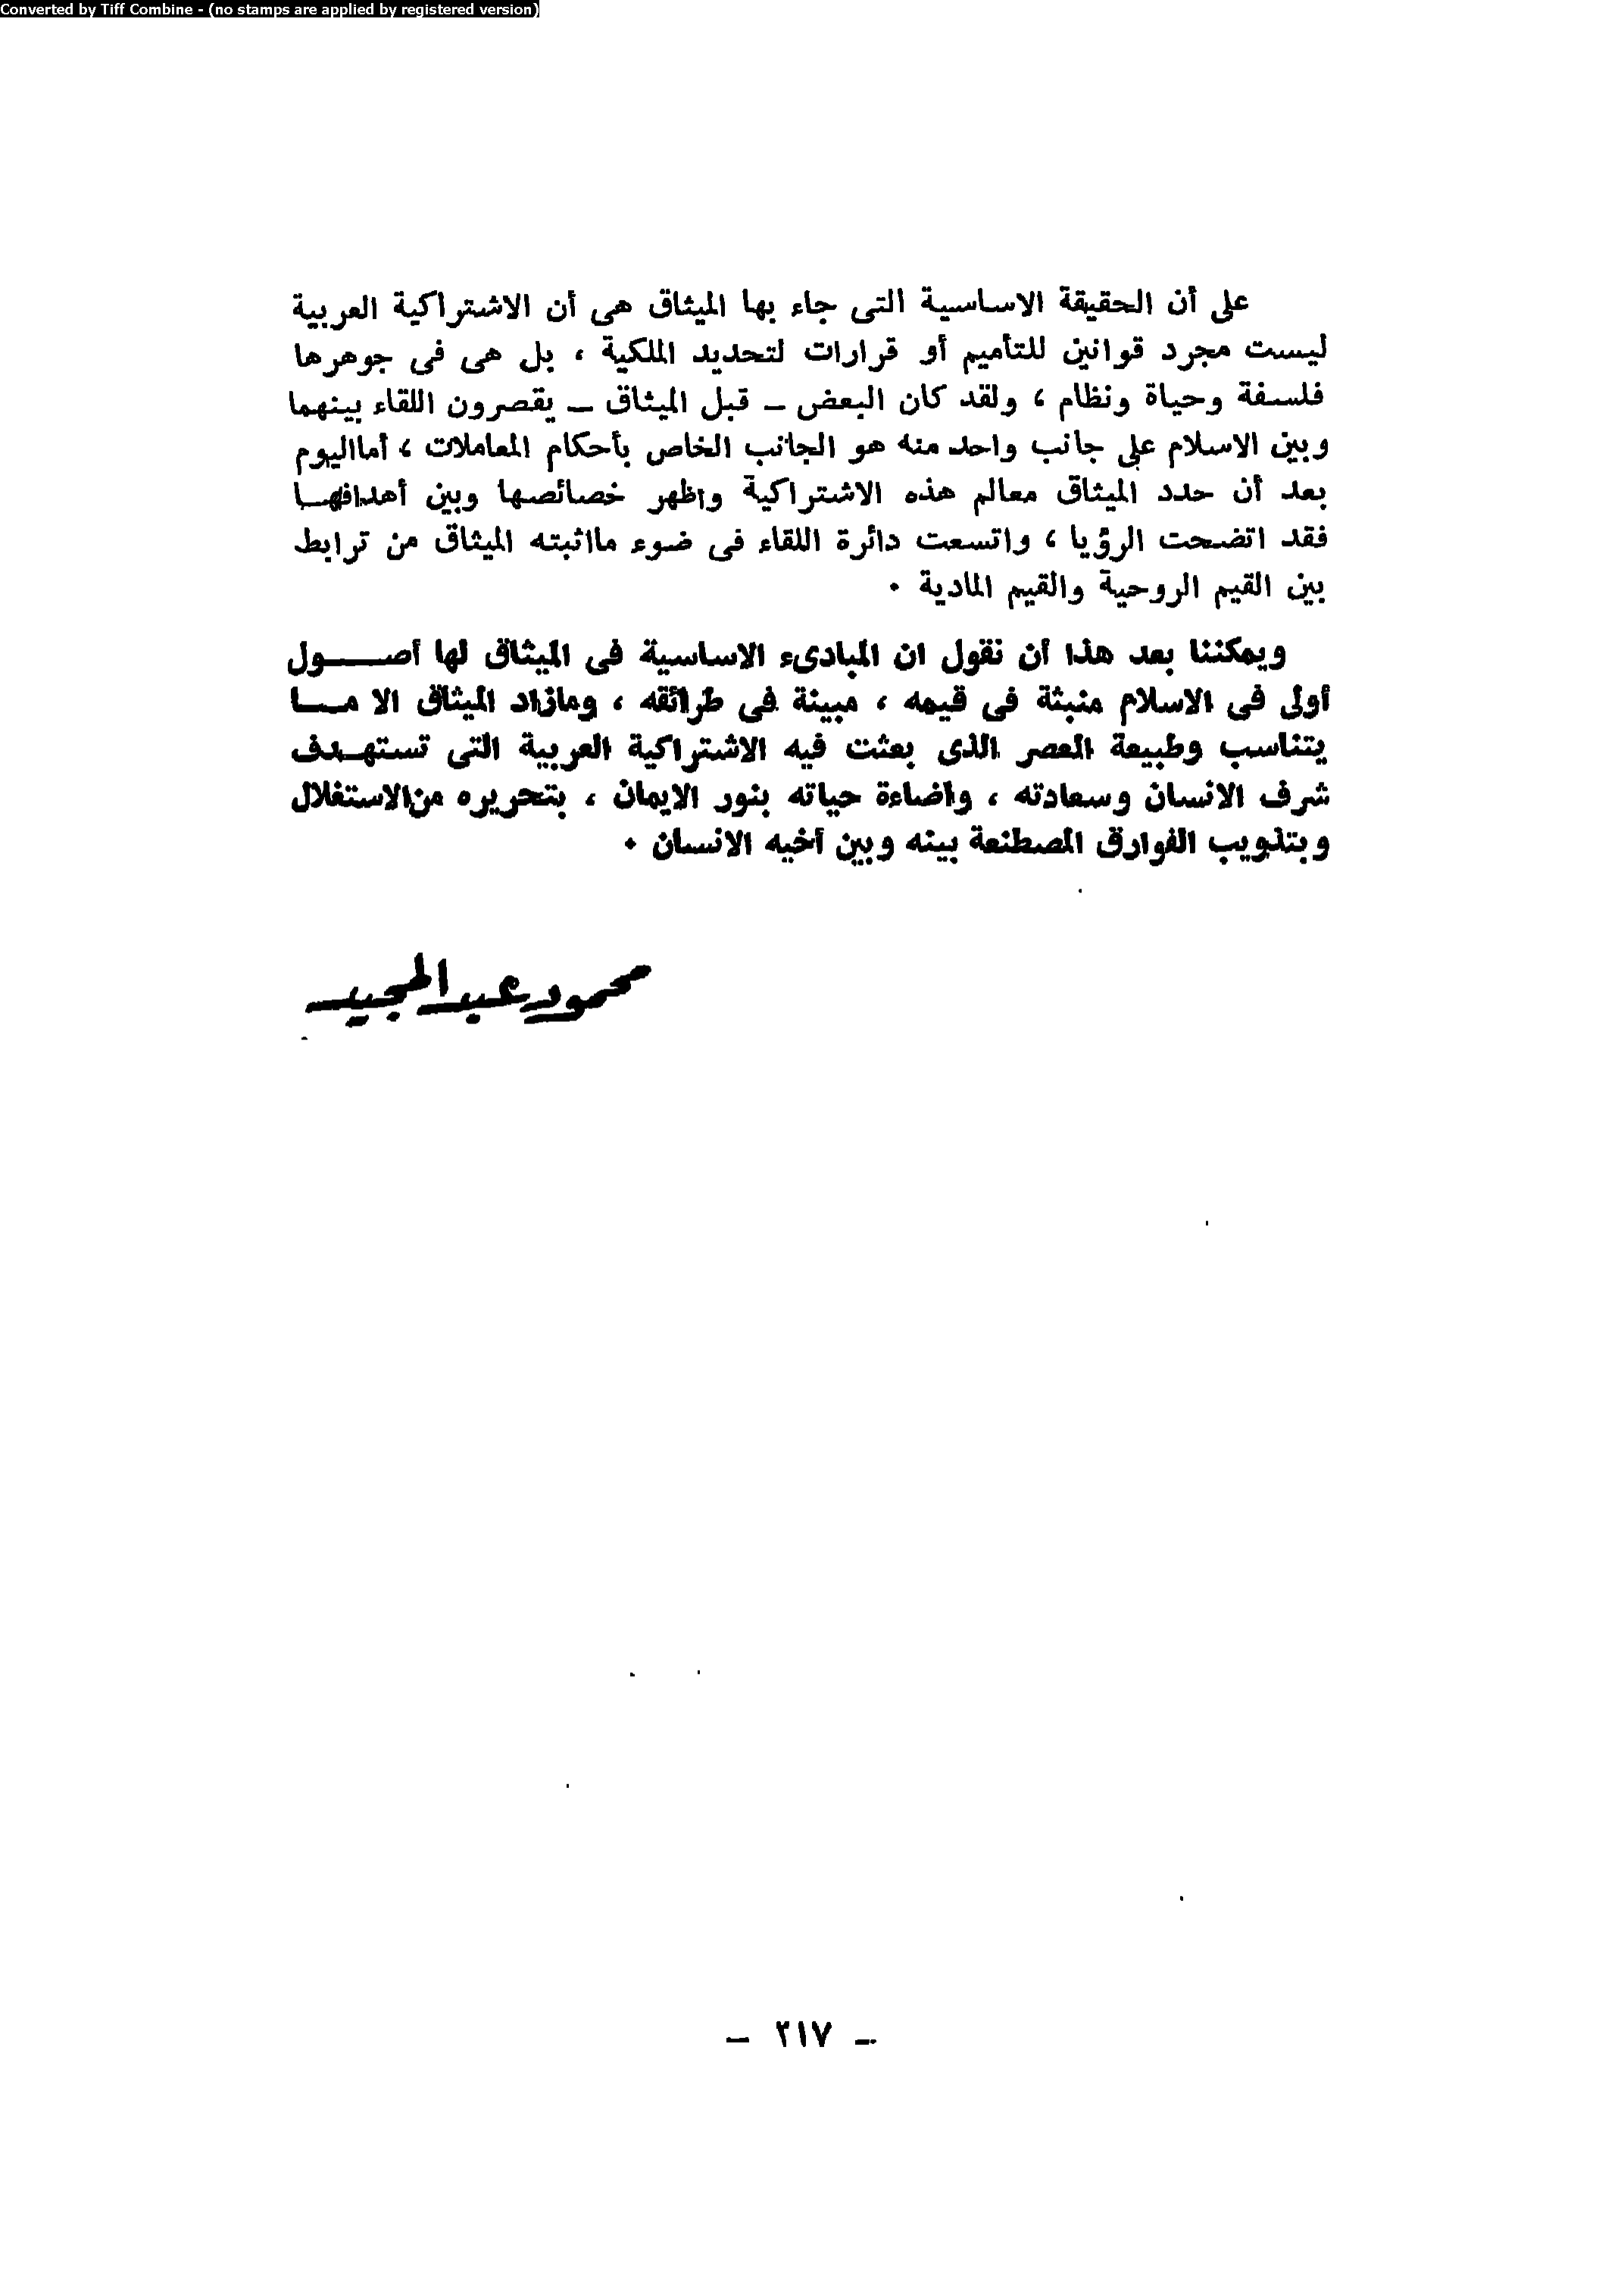 Converted by Tiff Combine - (no stamps are applied by registered version)
على أن الحقيقة الاساسية التى جاء بها الميثاق هى أن الاشتراكية العربية
ليست مجرد قوانين للتأميم أو قرارات لتحديد الملكية ، بل هى فى جوهرها
فلسفة وحياة ونظام ، ولقد كان البعض – قبل الميثاق – يقصرون اللقاء بينهما
وبين الاسلام على جانب واحد منه هو الجانب الخاص بأحكام المعاملات ، أمااليوم
بعد أن حدد الميثاق معالم هذه الاشتراكية واظهر خصائصها وبين أهدافهـا
فقد اتضحت الرؤيا ، واتسعت دائرة اللقاء فى ضوء مااثبته الميثاق من ترابط
بين القيم الروحية والقيم المادية ٠
ويمكننا بعد هذا أن نقول ان المبادىء الاساسية فى الميثاق لها أصــول
أولى فى الاسلام منبثة فى قيمه ، مبينة فى طرائقه ، ومازاد الميثاق الا مــا
يتناسب وطبيعة العصر الذى بعثت فيه الاشتراكية العربية التى تستهـدف
شرف الانسان وسعادته ، واضاءة حياته بنور الايمان ، بتحريره من الاستغلال
وبتذويب الفوارق المصطنعة بينه وبين أخيه الانسان ٠
محمود عبد المجيد
– ٢١٧ –